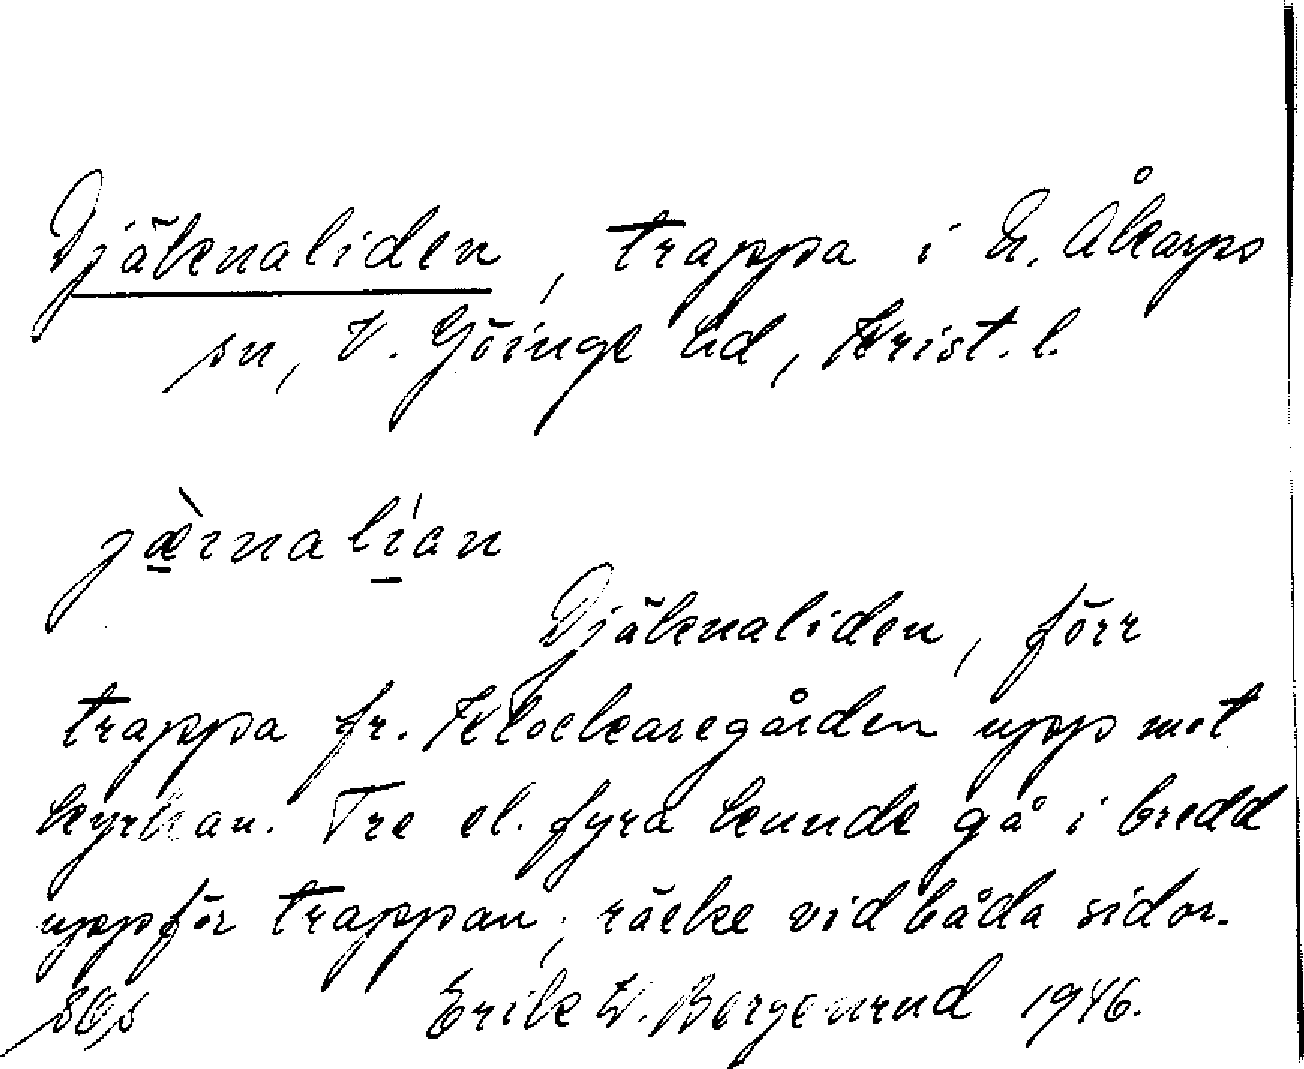 Djäknaliden, trappa i N. Åkarps
sn, V. Göinge hd, Krist. l.
jæ̀ınalían
Djäknaliden, förr
trappa fr. Klockaregården upp mot
kyrkan. Tre el. fyra kunde gå i bredd
uppför trappan; räcke vid båda sidor.
Erik W. Bergenrud 1946.